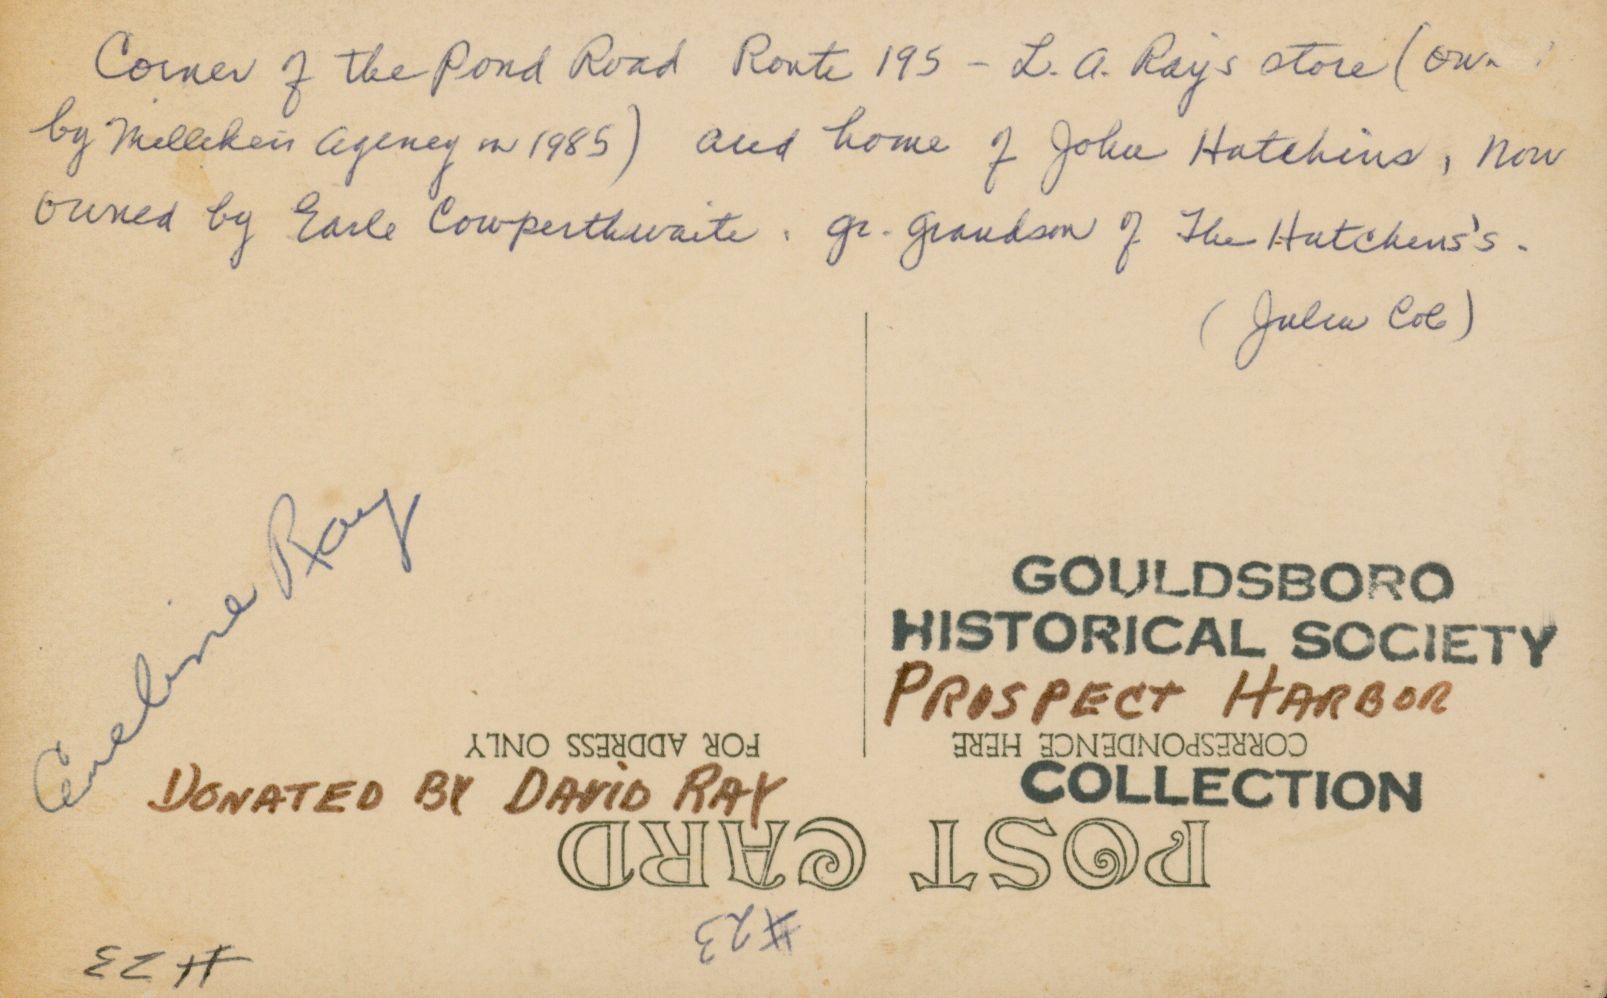 Corner of the Pond Road Route 195 - L. A. Ray's store (
by Milliken Agency in 1985) and home of John Hutchins, now
owned by Earle Cowperthwaite. gr. grandson of The Hutchens's.
(Julia Col)
Eveline Ray
GOULDSBORO
HISTORICAL SOCIETY
PROSPECT HARBOR
CORRESPONDENCE HERE
FOR ADDRESS ONLY
COLLECTION
DONATED BY DAVID RAY
POST CARD
#23
#23